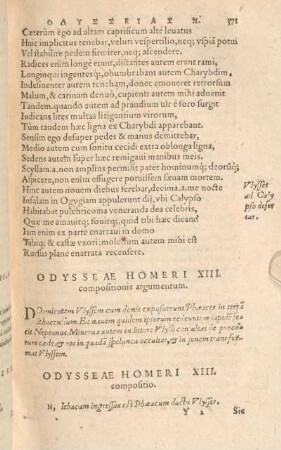 ΟΔΥΣΣΕΙΑΣ Ν. 371
Cæterùm ego ad altam caprificum altè leuatus
Huic implicitus tenebar, veluti vespertilio, neq; vspiã potui
Vel stabilire pedem firmiter, neq; ascendere.
Radices etim longè erant, distãtes autem erant rami,
Longinqui ingentesq́;, obumbrabant autem Charybdim.
Indesinenter autem tenebam, donec euomeret retrorsum
Malum, & carinam denuò, cupienti autem mihi aduenit
Tandem. quando autem ad prandium uir è foro surgit
Iudicans lites multas litigantium virorum,
Tùm tandem hæc ligna ex Charybdi apparebant.
Sensim ego desuper pedes & manus demittebar,
Medio autem cum sonitu cecidi extra oblonga ligna,
Sedens autem super hæc remigaui manibus meis.
Scyllam.a.non amplius permisit pater hominumq́; deorũq́;
Aspicere, non enim effugere portuissem sæuam mortem.
Hinc autem nouem diebus ferebar, decima.a.me nocte
Insulam in Ogygiam appulerunt dij, vbi Calypso
Habitabat pulchricoma veneranda dea celebris,
Quæ me amauitq́; fouitq́; quid tibi hæc dicam?
Iam enim ex parte enarraui in domo
Tibiq́; & castæ vxori: molestum autem mihi est
Rursus plane enarrata recensere.
Vlysses
ad Caly
pso defer
tur.
ODYSSEAE HOMERI XIII.
compositionis argumentum.
DOrmientem Vlyssem cum donis exposuerunt Phæaces in terrã
Ithacensium. Et nauem quidem ipsorum redeuntem lapidẽ fe-
cit Neptunus. Minerua autem in littore Vlyssi consultat de proco-
rum cæde, & res in quadã spelunca occultat, & in senem transfor-
mat Vlyssem.
ODYSSEAE HOMERI XIII.
compositio.
N, Ithacam ingressus est Phæacum ductu Vlysses.
Y 2 Sic